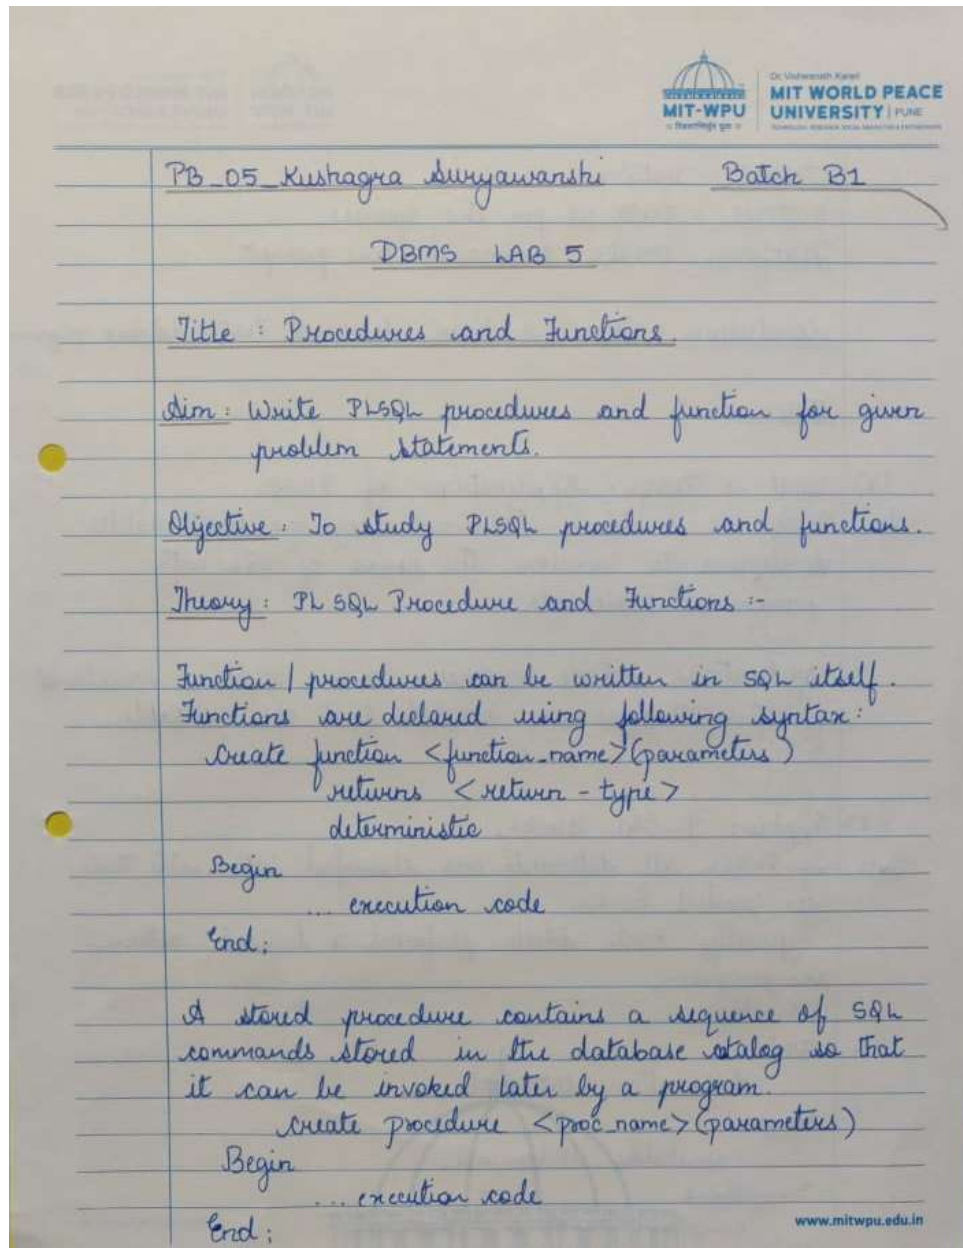 Dr. Vishwanath Karad
MIT WORLD PEACE
UNIVERSITY | PUNE
MIT-WPU
PB_05_Kushagra Suryawanshi Batch B1
DBMS LAB 5
Title : Procedures and Functions.
Aim : Write PLSQL procedures and function for given
problem statements.
Objective : To study PLSQL procedures and functions.
Theory : PL SQL Procedure and Functions :-
Function / procedures can be written in SQL itself.
Functions are declared using following syntax :
create function <function_name>(parameters)
returns <return - type>
deterministic
Begin
... execution code
End ;
A stored procedure contains a sequence of SQL
commands stored in the database catalog so that
it can be invoked later by a program.
create procedure <proc_name>(parameters)
Begin
... execution code
End ;
www.mitwpu.edu.in